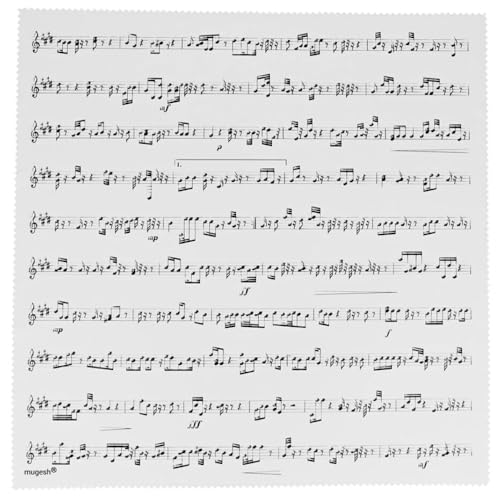 sf
p
1.
mp
ff
mp
f
fff
sf
mugesh®